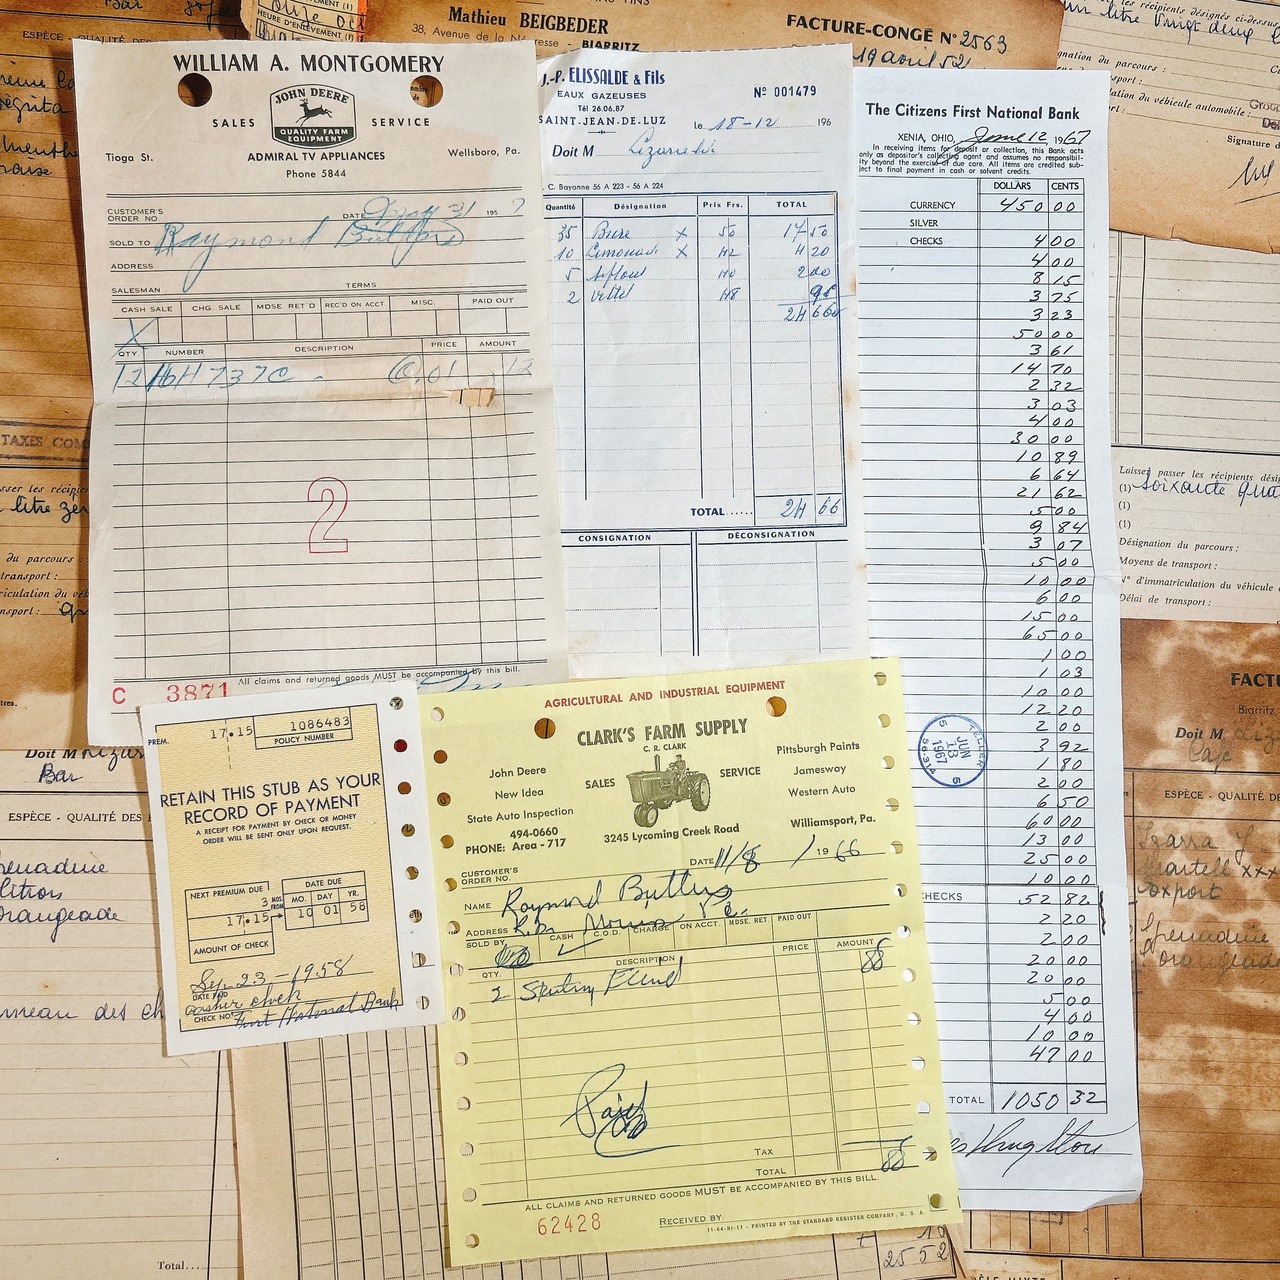 Mathieu BEIGBEDER
38, Avenue de la Négresse - BIARRITZ
FACTURE-CONGÉ N° 2563
19 avril 52
WILLIAM A. MONTGOMERY
JOHN DEERE
QUALITY FARM
EQUIPMENT
SALES SERVICE
Tioga St. ADMIRAL TV APPLIANCES Wellsboro, Pa.
Phone 5844
CUSTOMER'S
ORDER NO. DATE 31 195 7
SOLD TO Raymond
ADDRESS
SALESMAN TERMS
CASH SALE CHG SALE MDSE RET'D REC'D ON ACCT MISC. PAID OUT
X
QTY. NUMBER DESCRIPTION PRICE AMOUNT
12 H6H 737C - @.01 12
2
All claims and returned goods MUST be accompanied by this bill.
C 3871
J.-P. ELISSALDE & Fils
EAUX GAZEUSES
Tél 26.06.87
SAINT-JEAN-DE-LUZ
N° 001479
le 18-12 196
Doit M
C. Bayonne 56 A 223 - 56 A 224
Quantité Désignation Prix Frs. TOTAL
35 X 50 17 50
10 Limonade X 42 4 20
5 40 2 00
2 Vittel 48 96
24 66
TOTAL ..... 24 66
CONSIGNATION DÉCONSIGNATION
The Citizens First National Bank
XENIA, OHIO, June 12, 1967
In receiving items for deposit or collection, this Bank acts
only as depositor's collecting agent and assumes no responsibil-
ity beyond the exercise of due care. All items are credited sub-
ject to final payment in cash or solvent credits.
DOLLARS CENTS
CURRENCY 450 00
SILVER
CHECKS 4 00
4 00
8 15
3 75
3 23
50 00
3 61
14 70
2 32
3 03
4 00
30 00
10 89
6 64
21 62
5 00
9 84
3 07
5 00
10 00
6 00
15 00
65 00
1 00
1 03
10 00
12 20
2 00
3 92
1 80
2 00
6 50
60 00
13 00
25 00
10 00
CHECKS 52 82
2 20
2 00
20 00
20 00
5 00
4 00
10 00
47 00
TOTAL 1050 32
TELLER
JUN
13
1967
5
56-314
5
PREM. 17.15 1086483
POLICY NUMBER
RETAIN THIS STUB AS YOUR
RECORD OF PAYMENT
A RECEIPT FOR PAYMENT BY CHECK OR MONEY
ORDER WILL BE SENT ONLY UPON REQUEST.
NEXT PREMIUM DUE DATE DUE
3 MOS. FROM MO. DAY YR.
17.15 10 01 58
AMOUNT OF CHECK
Sep. 23 - 1958
DATE PAID
Casher check
CHECK NO. First National Bank
AGRICULTURAL AND INDUSTRIAL EQUIPMENT
CLARK'S FARM SUPPLY
C. R. CLARK
SALES SERVICE
John Deere
New Idea
State Auto Inspection
494-0660
PHONE: Area - 717
Pittsburgh Paints
Jamesway
Western Auto
3245 Lycoming Creek Road Williamsport, Pa.
CUSTOMER'S
ORDER NO. DATE 11/8/ 1966
NAME Raymond Butters
ADDRESS R.D. Morris Pa.
SOLD BY CASH C.O.D. CHARGE ON ACCT. MDSE. RET. PAID OUT
QTY. DESCRIPTION PRICE AMOUNT
2 Starting Fluid 88
Paid
TAX
TOTAL 88
ALL CLAIMS AND RETURNED GOODS MUST BE ACCOMPANIED BY THIS BILL.
62428 RECEIVED BY:
11-64-B1-11 - PRINTED BY THE STANDARD REGISTER COMPANY, U. S. A.
TAXES
du parcours :
transport :
Doit M
Bar
ESPÈCE - QUALITÉ DES
Total....
2552
récipients désignés ci-dessus
Signature d
Laissez passer les récipients
(1) soixante
(1)
(1)
Désignation du parcours :
Moyens de transport :
N° d'immatriculation du véhicule
Délai de transport :
FACTU
Biarritz,
Doit M
Café
ESPÈCE - QUALITÉ DES
Izarra
Martell xxx
export
Grenadine